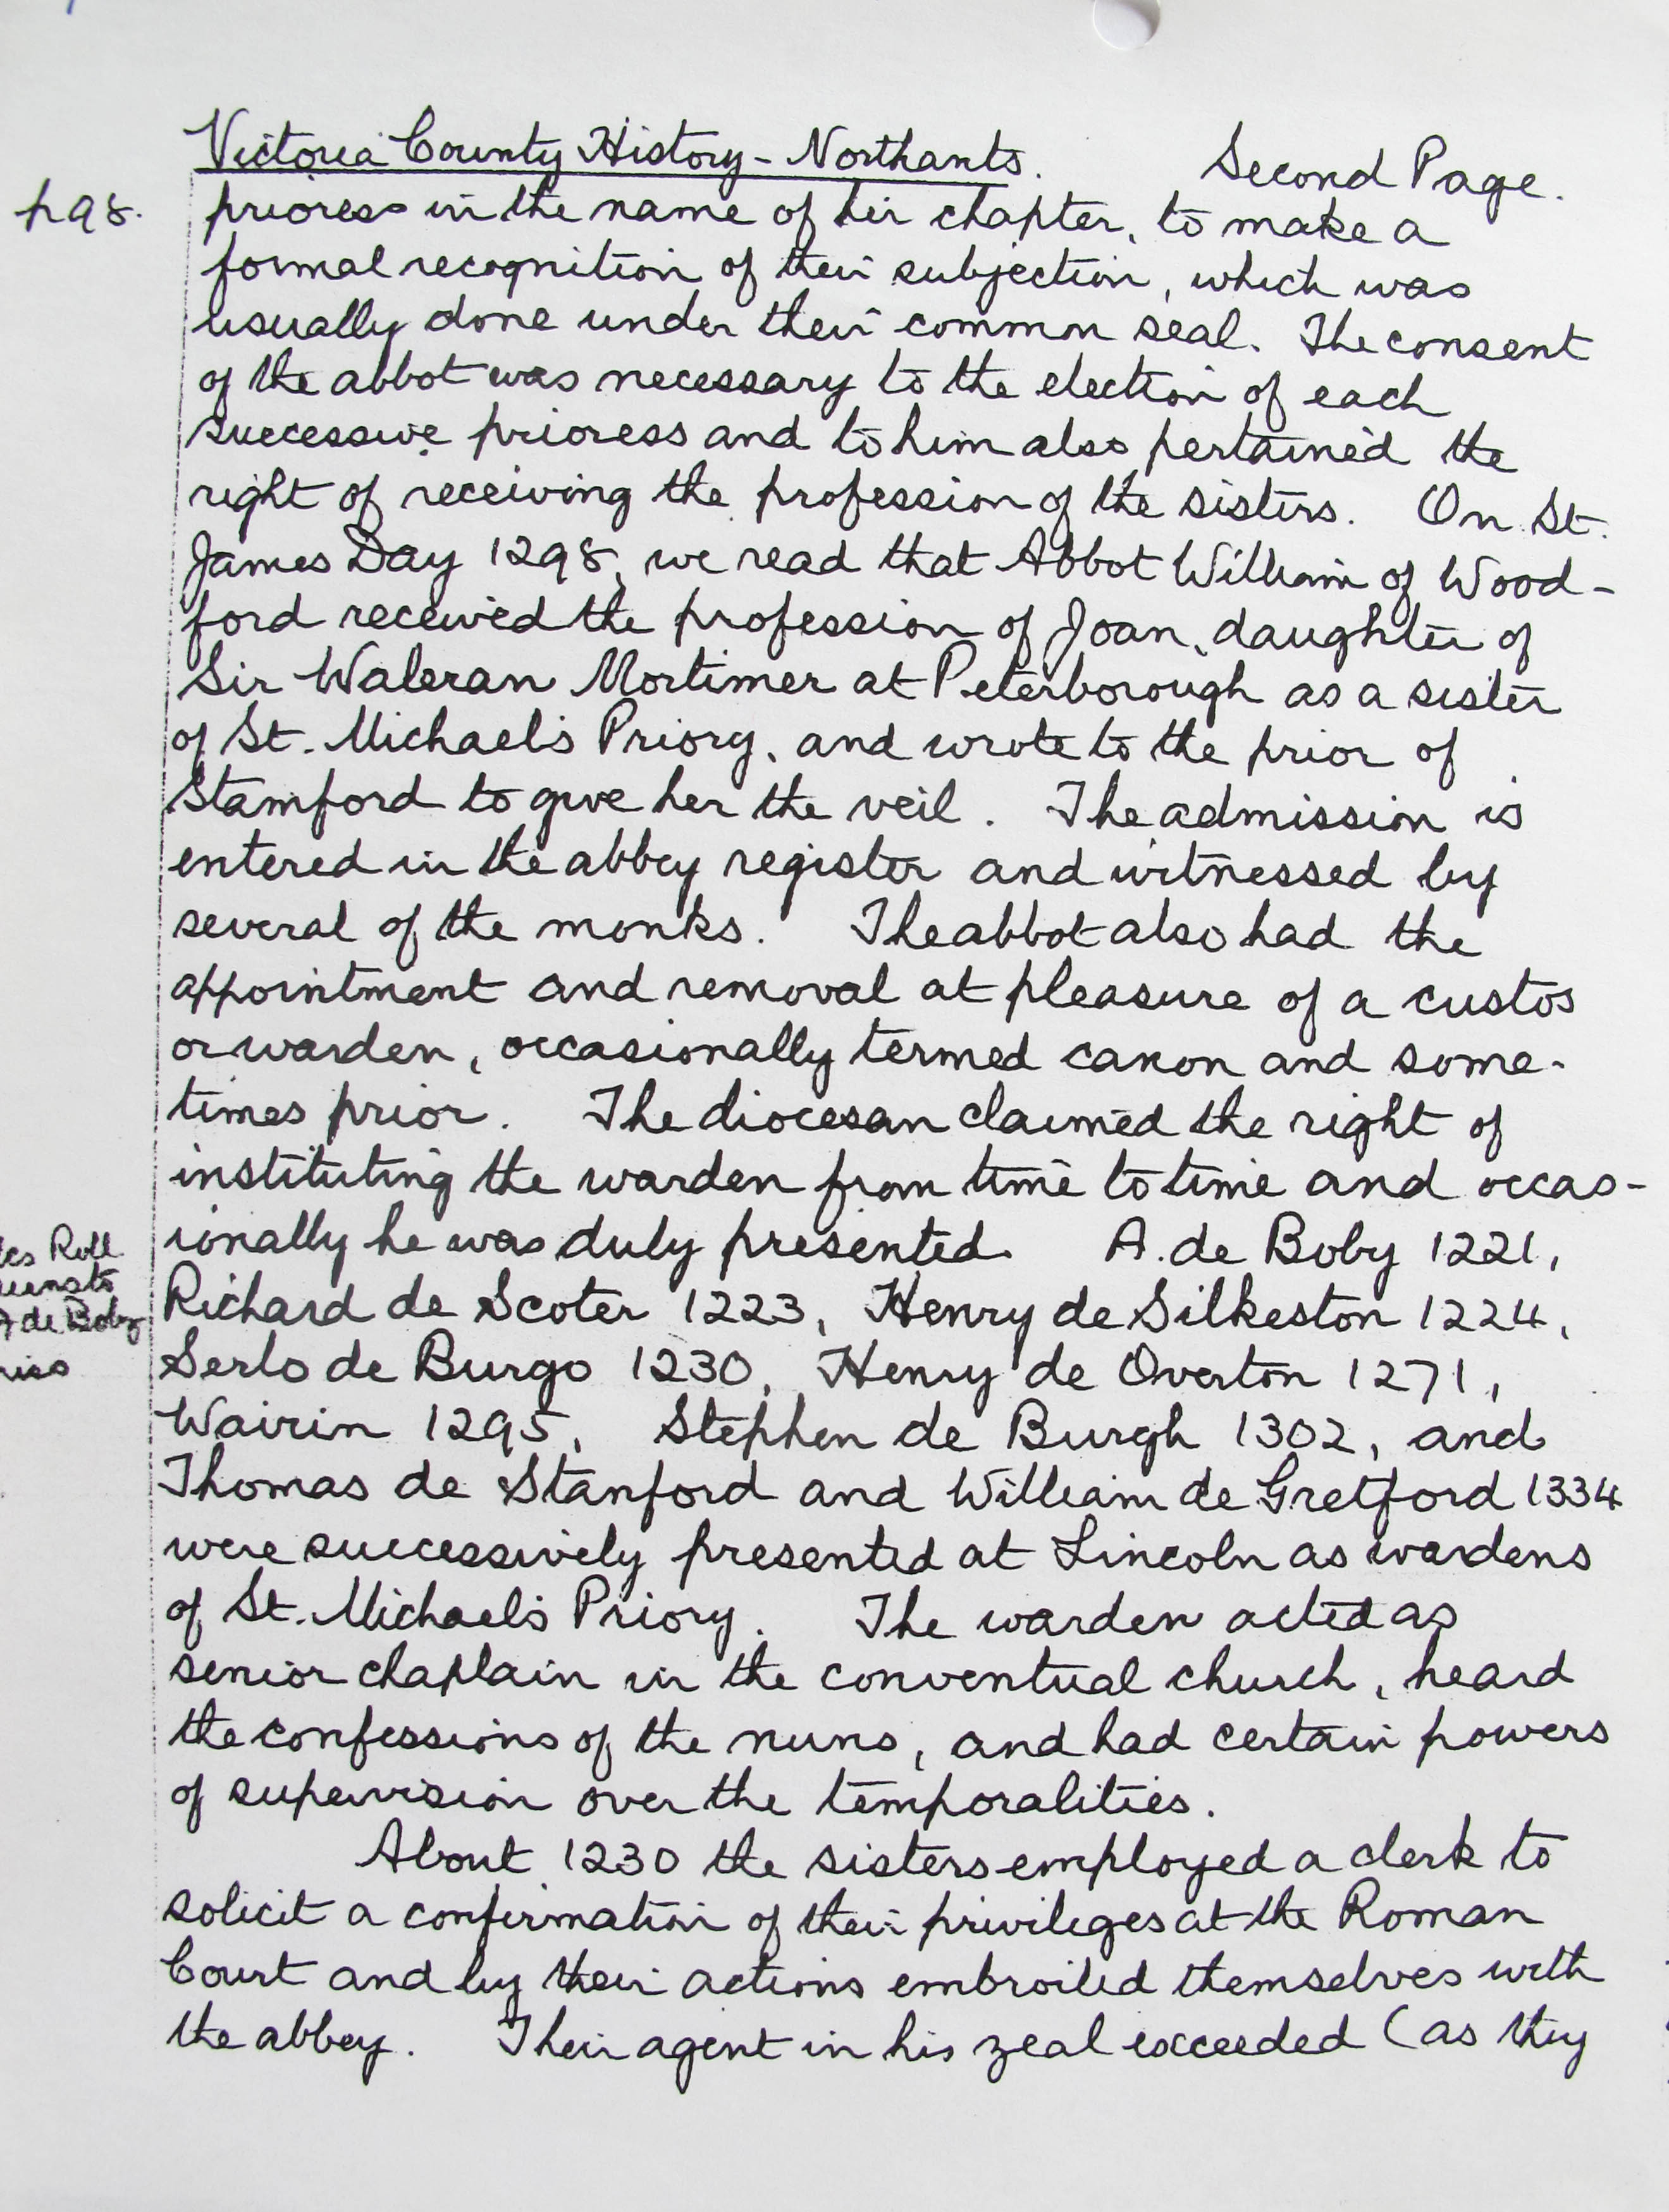 Victoria County History - Northants. Second Page.
p 98. prioress in the name of her chapter, to make a
formal recognition of their subjection, which was
usually done under their common seal. The consent
of the abbot was necessary to the election of each
successive prioress and to him also pertained the
right of receiving the profession of the sisters. On St.
James Day 1298, we read that Abbot William of Wood-
ford received the profession of Joan, daughter of
Sir Waleran Mortimer at Peterborough as a sister
of St. Michael's Priory, and wrote to the prior of
Stamford to give her the veil. The admission is
entered in the abbey register and witnessed by
several of the monks. The abbot also had the
appointment and removal at pleasure of a custos
or warden, occasionally termed canon and some-
times prior. The diocesan claimed the right of
instituting the warden from time to time and occas-
ionally he was duly presented. A. de Boby 1221,
Roll
de Boby
Richard de Scoter 1223, Henry de Silkeston 1224,
Serlo de Burgo 1230, Henry de Overton 1271,
Wairin 1295, Stephen de Burgh 1302, and
Thomas de Stanford and William de Gretford 1334
were successively presented at Lincoln as wardens
of St. Michael's Priory. The warden acted as
senior chaplain in the conventual church, heard
the confessions of the nuns, and had certain powers
of supervision over the temporalities.
About 1230 the sisters employed a clerk to
solicit a confirmation of their privileges at the Roman
Court and by their actions embroiled themselves with
the abbey. Their agent in his zeal exceeded (as they